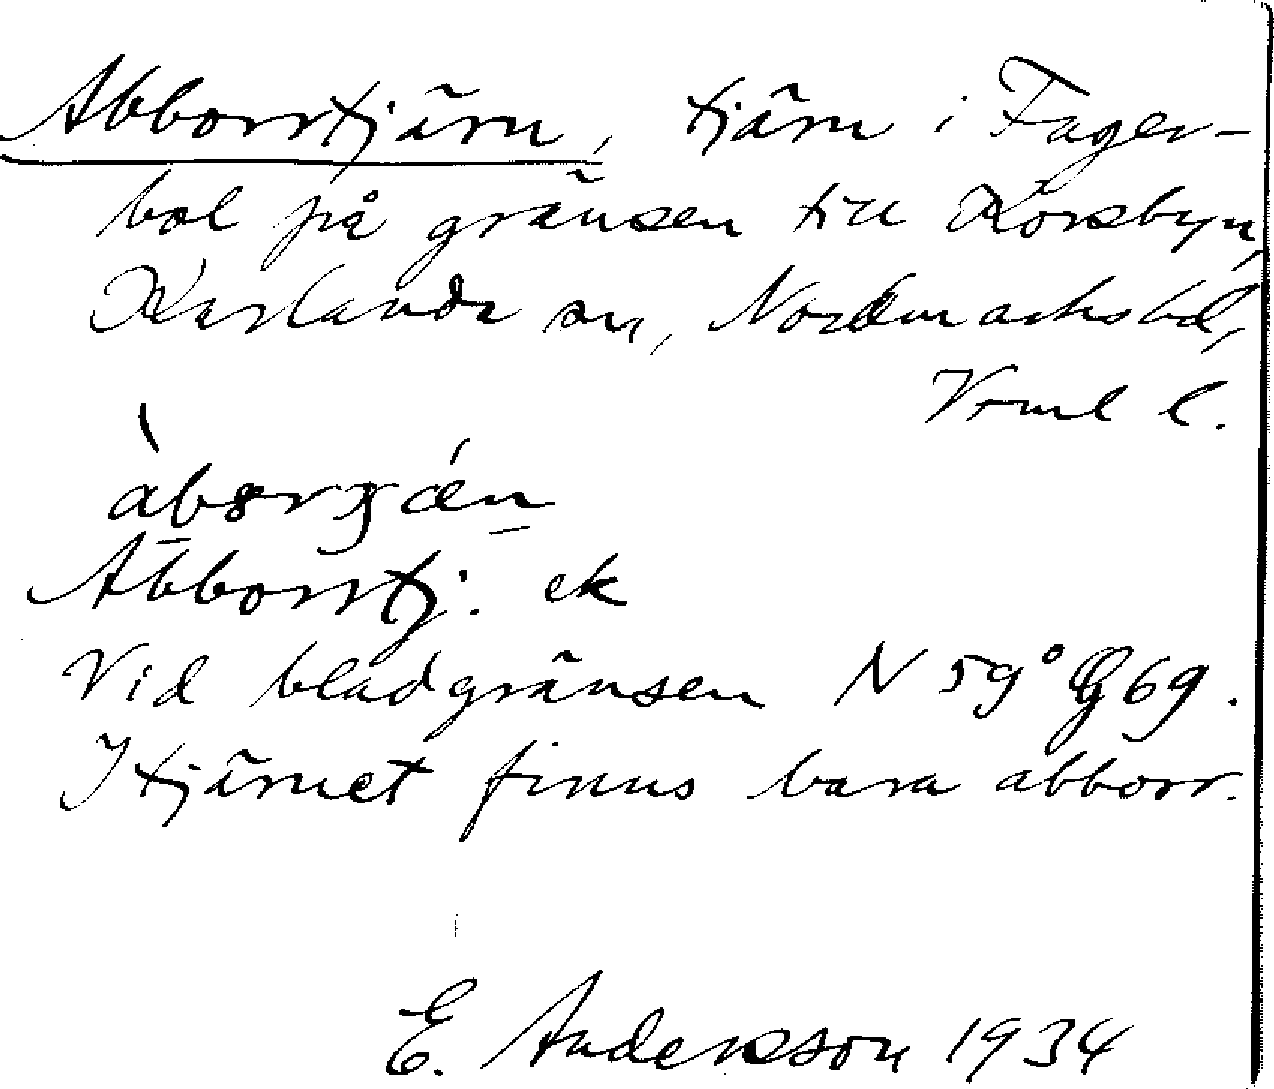 Abborrtjärn, tjärn i Fager-
bol på gränsen till Korsbyn,
Karlanda sn, Nordmarks hd,
Vrml l.
Abborrtj. ek
Vid bladgränsen N 59° G 69.
I tjärnet finns bara abborr.
E. Andersson 1934